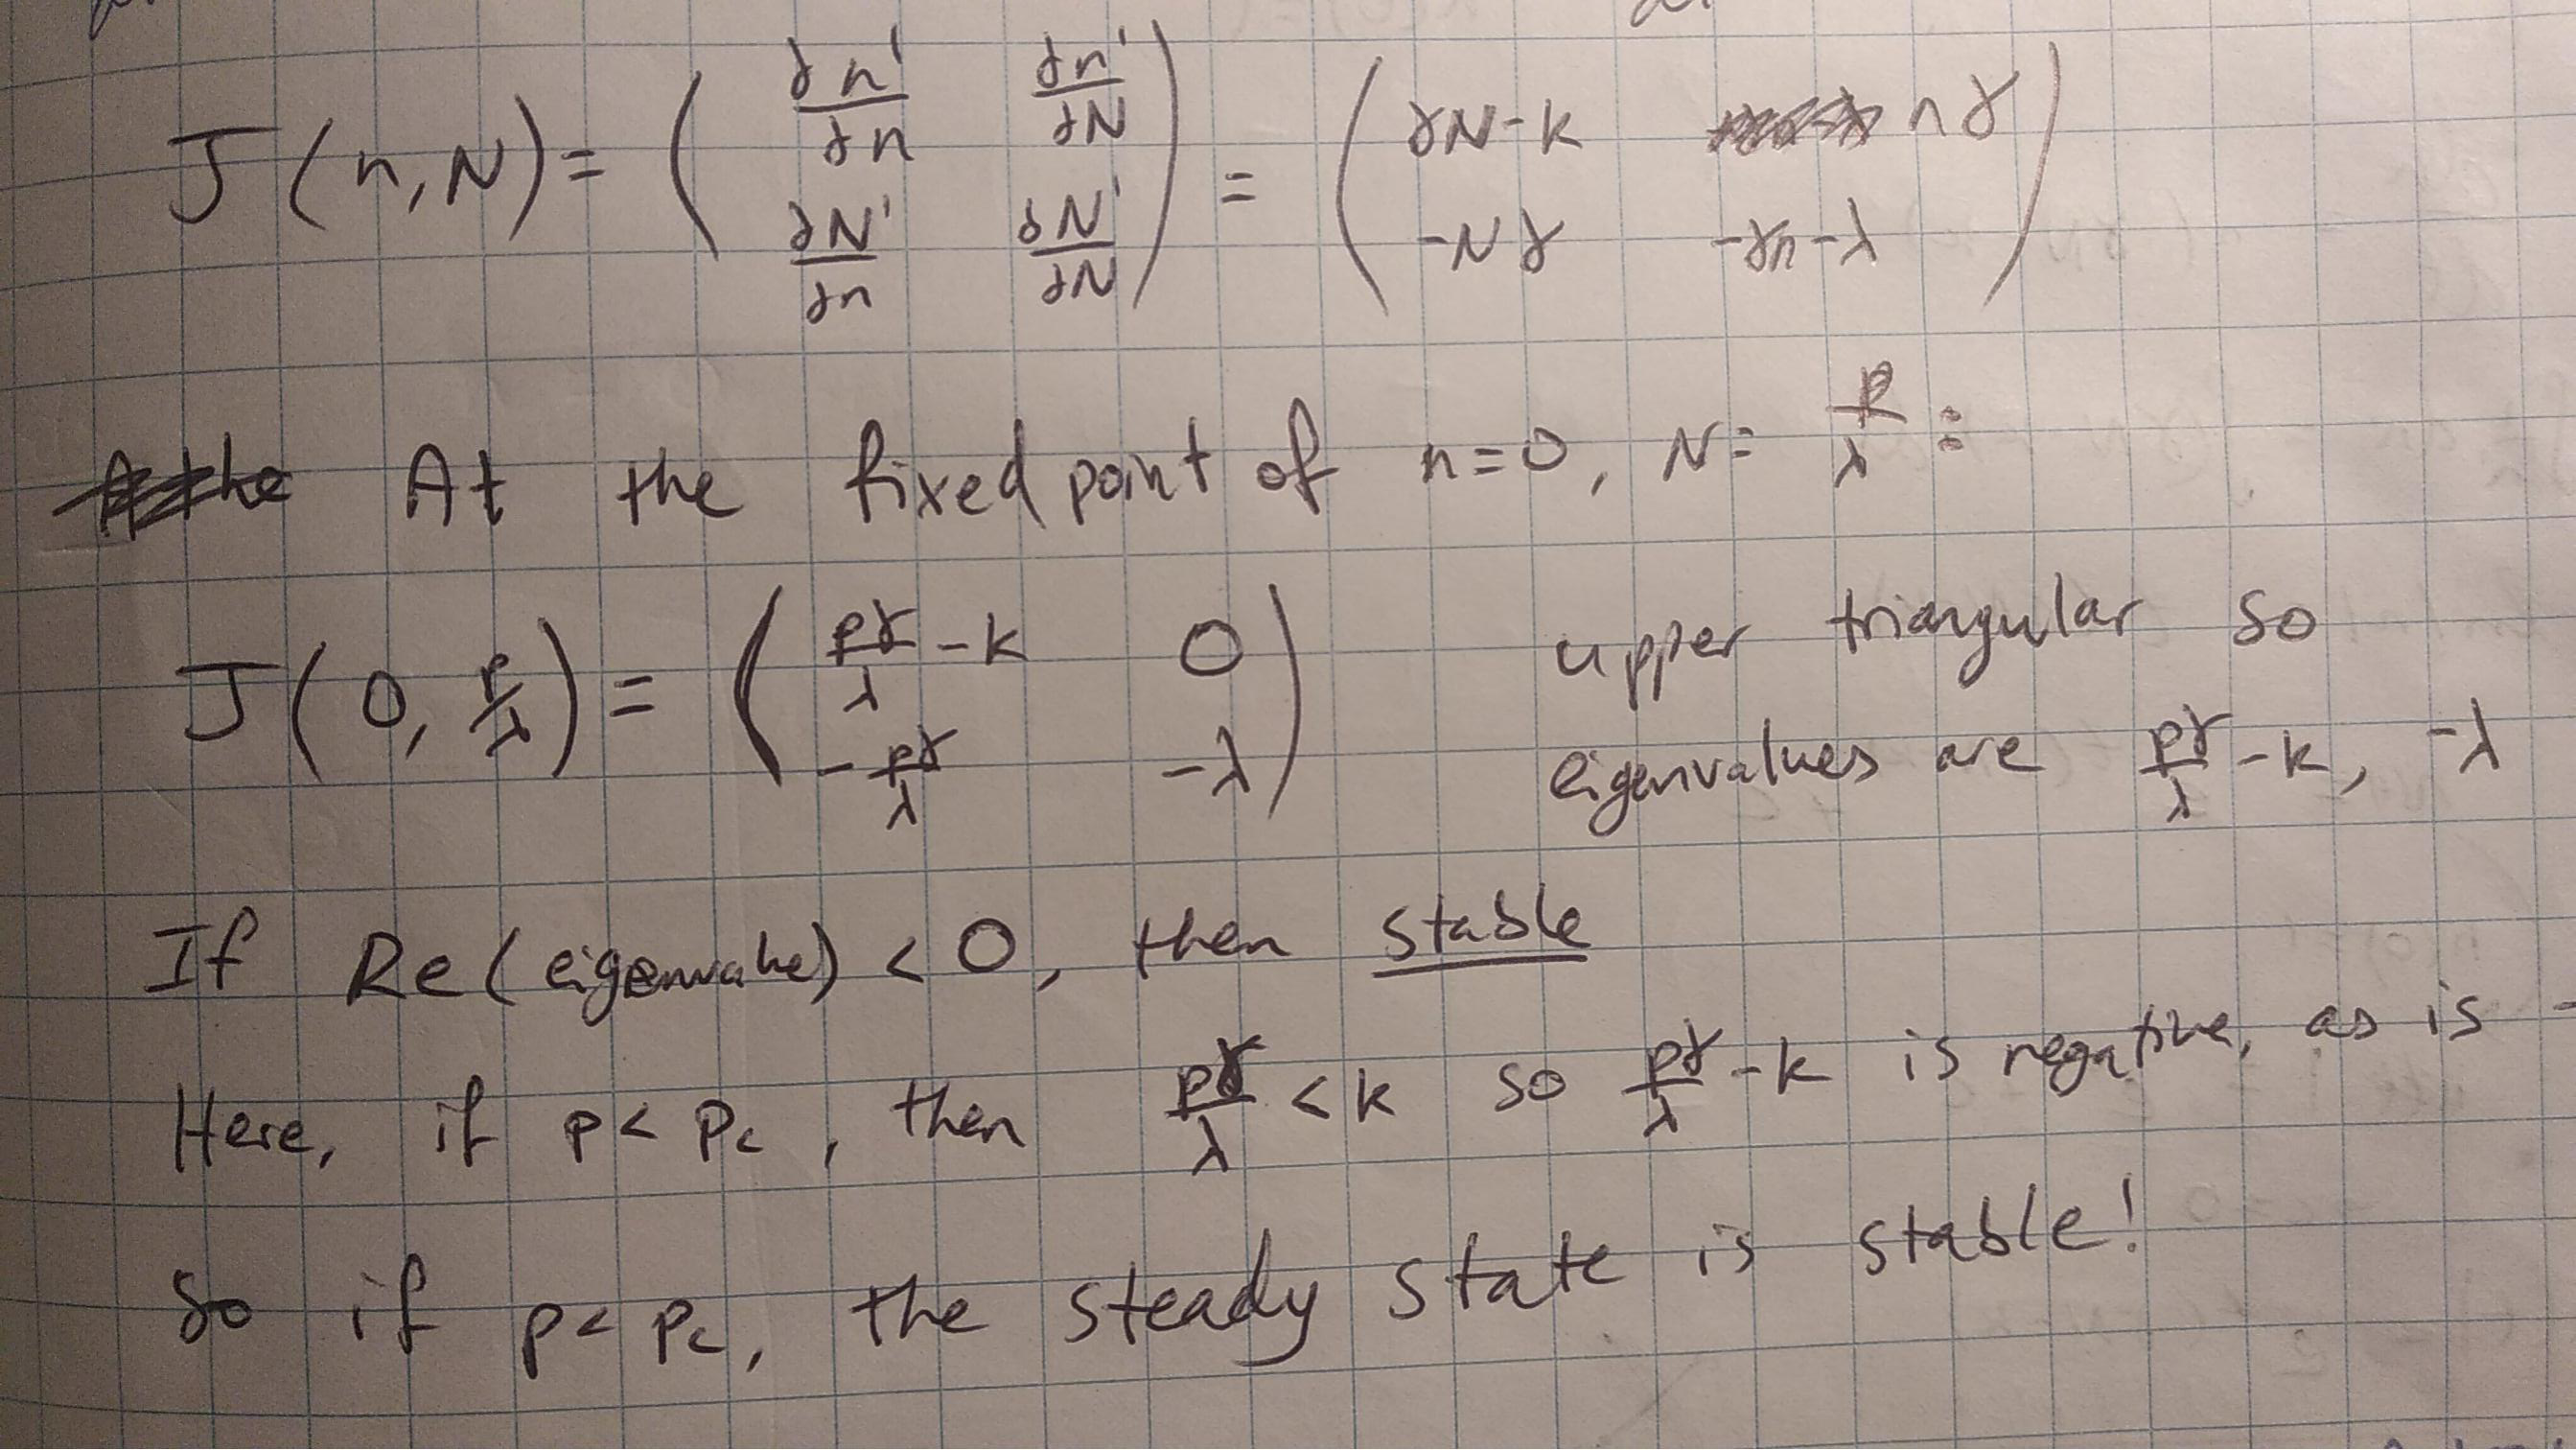 J(n,N) = ( ∂n'/∂n ∂n'/∂N ; ∂N'/∂n ∂N'/∂N ) = ( γN-k nγ ; -Nγ -γn-λ )
At the fixed point of n=0, N= p/λ :
J(0, p/λ) = ( pγ/λ -k 0 ; -pγ/λ -λ ) upper triangular so
eigenvalues are pγ/λ -k, -λ
If Re(eigenvalue) < 0, then stable
Here, if p < pc, then pγ/λ < k so pγ/λ -k is negative, as is -
So if p < pc, the steady state is stable!